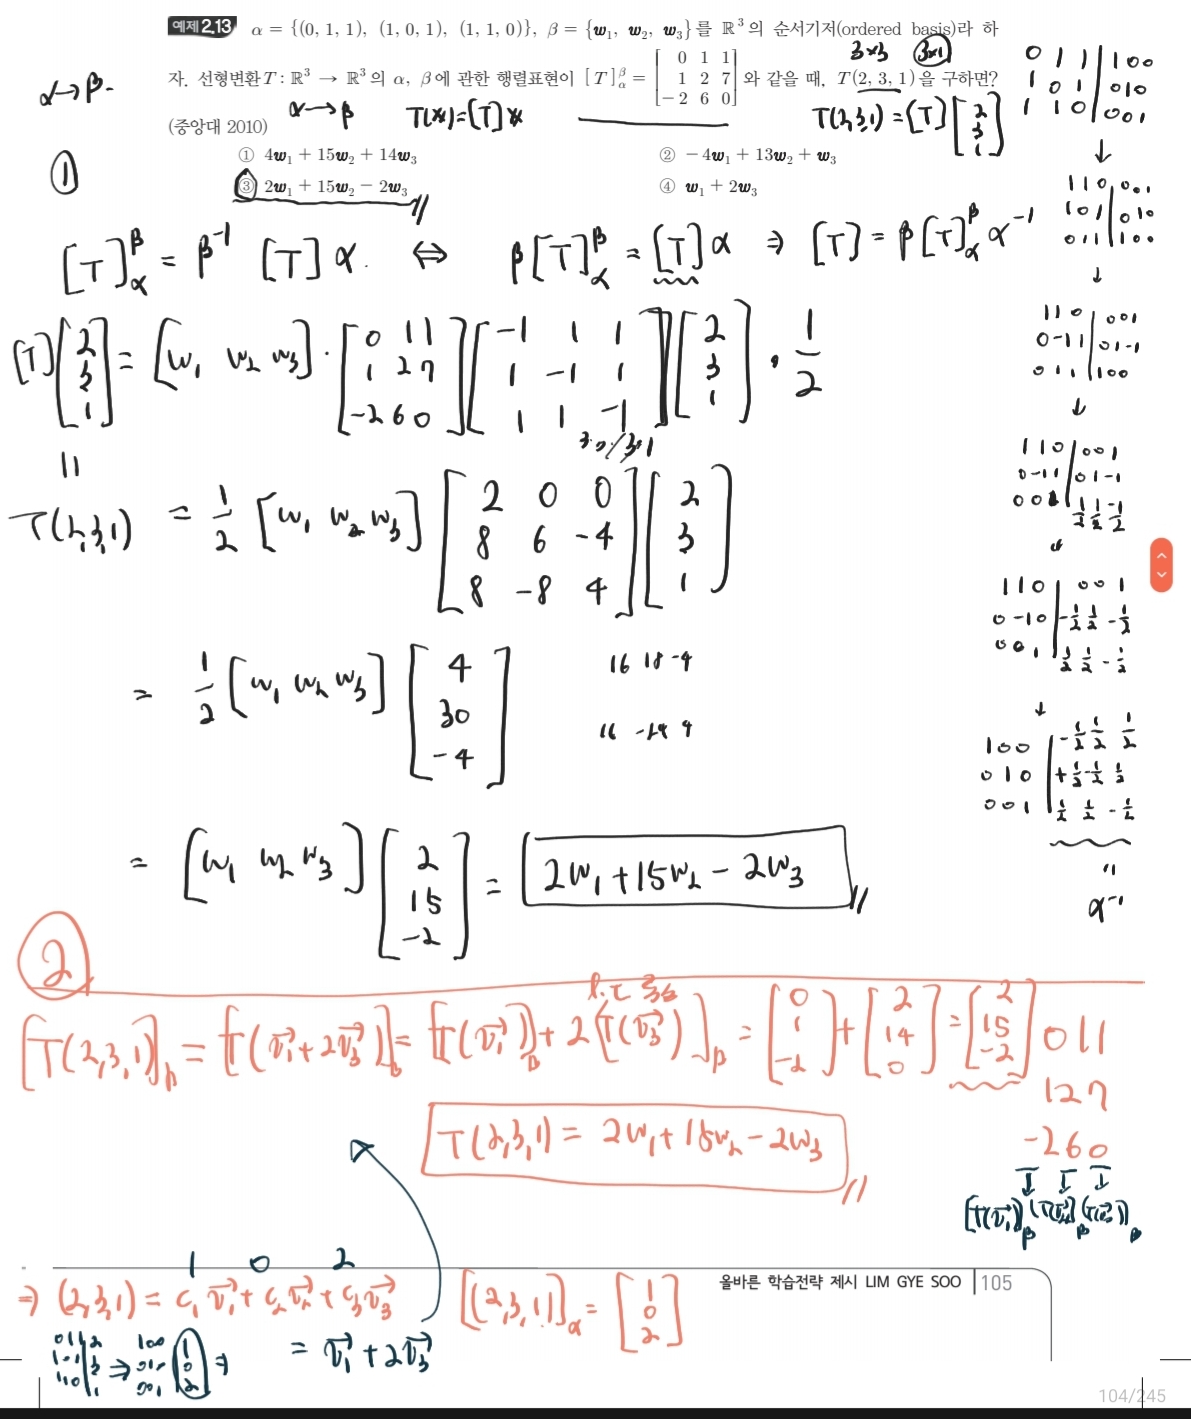 예제 2.13 α = {(0, 1, 1), (1, 0, 1), (1, 1, 0)}, β = {w₁, w₂, w₃}를 ℝ³의 순서기저(ordered basis)라 하
자. 선형변환 T : ℝ³ → ℝ³의 α, β에 관한 행렬표현이 [T]_α^β = [0 1 1; 1 2 7; −2 6 0] 와 같을 때, T(2, 3, 1)을 구하면?
(중앙대 2010)
① 4w₁ + 15w₂ + 14w₃ ② −4w₁ + 13w₂ + w₃
③ 2w₁ + 15w₂ − 2w₃ ④ w₁ + 2w₃
α→β.
α→β
T(x)=[T]x
3x3 3x1
T(2,3,1)=[T][2; 3; 1]
①
[T]_α^β = β⁻¹ [T] α. ⇔ β[T]_α^β = [T]α ⇒ [T] = β[T]_α^β α⁻¹
[T][2; 3; 1] = [w₁ w₂ w₃]·[0 1 1; 1 2 7; -2 6 0][-1 1 1; 1 -1 1; 1 1 -1][2; 3; 1] · 1/2
=
T(2,3,1) = 1/2 [w₁ w₂ w₃][2 0 0; 8 6 -4; 8 -8 4][2; 3; 1]
= 1/2 [w₁ w₂ w₃][4; 30; -4]
16 18 -4
16 -24 4
= [w₁ w₂ w₃][2; 15; -2] = 2w₁+15w₂-2w₃
0 1 1 | 1 0 0
1 0 1 | 0 1 0
1 1 0 | 0 0 1
↓
1 1 0 | 0 0 1
1 0 1 | 0 1 0
0 1 1 | 1 0 0
↓
1 1 0 | 0 0 1
0 -1 1 | 0 1 -1
0 1 1 | 1 0 0
↓
1 1 0 | 0 0 1
0 -1 1 | 0 1 -1
0 0 1 | 1/2 1/2 -1/2
↓
1 1 0 | 0 0 1
0 -1 0 | -1/2 1/2 -1/2
0 0 1 | 1/2 1/2 -1/2
↓
1 0 0 | -1/2 1/2 1/2
0 1 0 | +1/2 -1/2 1/2
0 0 1 | 1/2 1/2 -1/2
"
α⁻¹
②
[T(2,3,1)]_β = [T(v₁+2v₃)]_β = [T(v₁)]_β + 2[T(v₃)]_β = [0; 1; -2] + [2; 14; 0] = [2; 15; -2]
T(2,3,1) = 2w₁+15w₂-2w₃
0 1 1
1 2 7
-2 6 0
[T(v₁)]_β [T(v₂)]_β [T(v₃)]_β
1 0 2
⇒ (2,3,1) = c₁v₁+c₂v₂+c₃v₃ [(2,3,1)]_α = [1; 0; 2]
0 1 1 | 2
1 0 1 | 3
1 1 0 | 1
⇒
1 0 0 | 1
0 1 0 | 0
0 0 1 | 2
⇒
= v₁+2v₃
올바른 학습전략 제시 LIM GYE SOO | 105
104/245